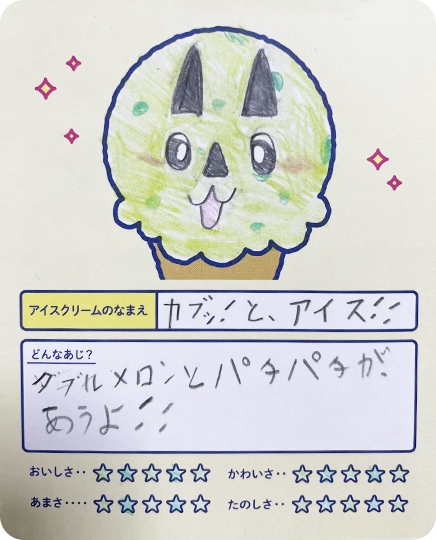 アイスクリームのなまえ
カブッ!と、アイス!!
どんなあじ?
ダブルメロンとパチパチが
あうよ!!
おいしさ‥ ☆☆☆☆☆
かわいさ‥ ☆☆☆☆☆
あまさ‥‥ ☆☆☆☆☆
たのしさ‥ ☆☆☆☆☆